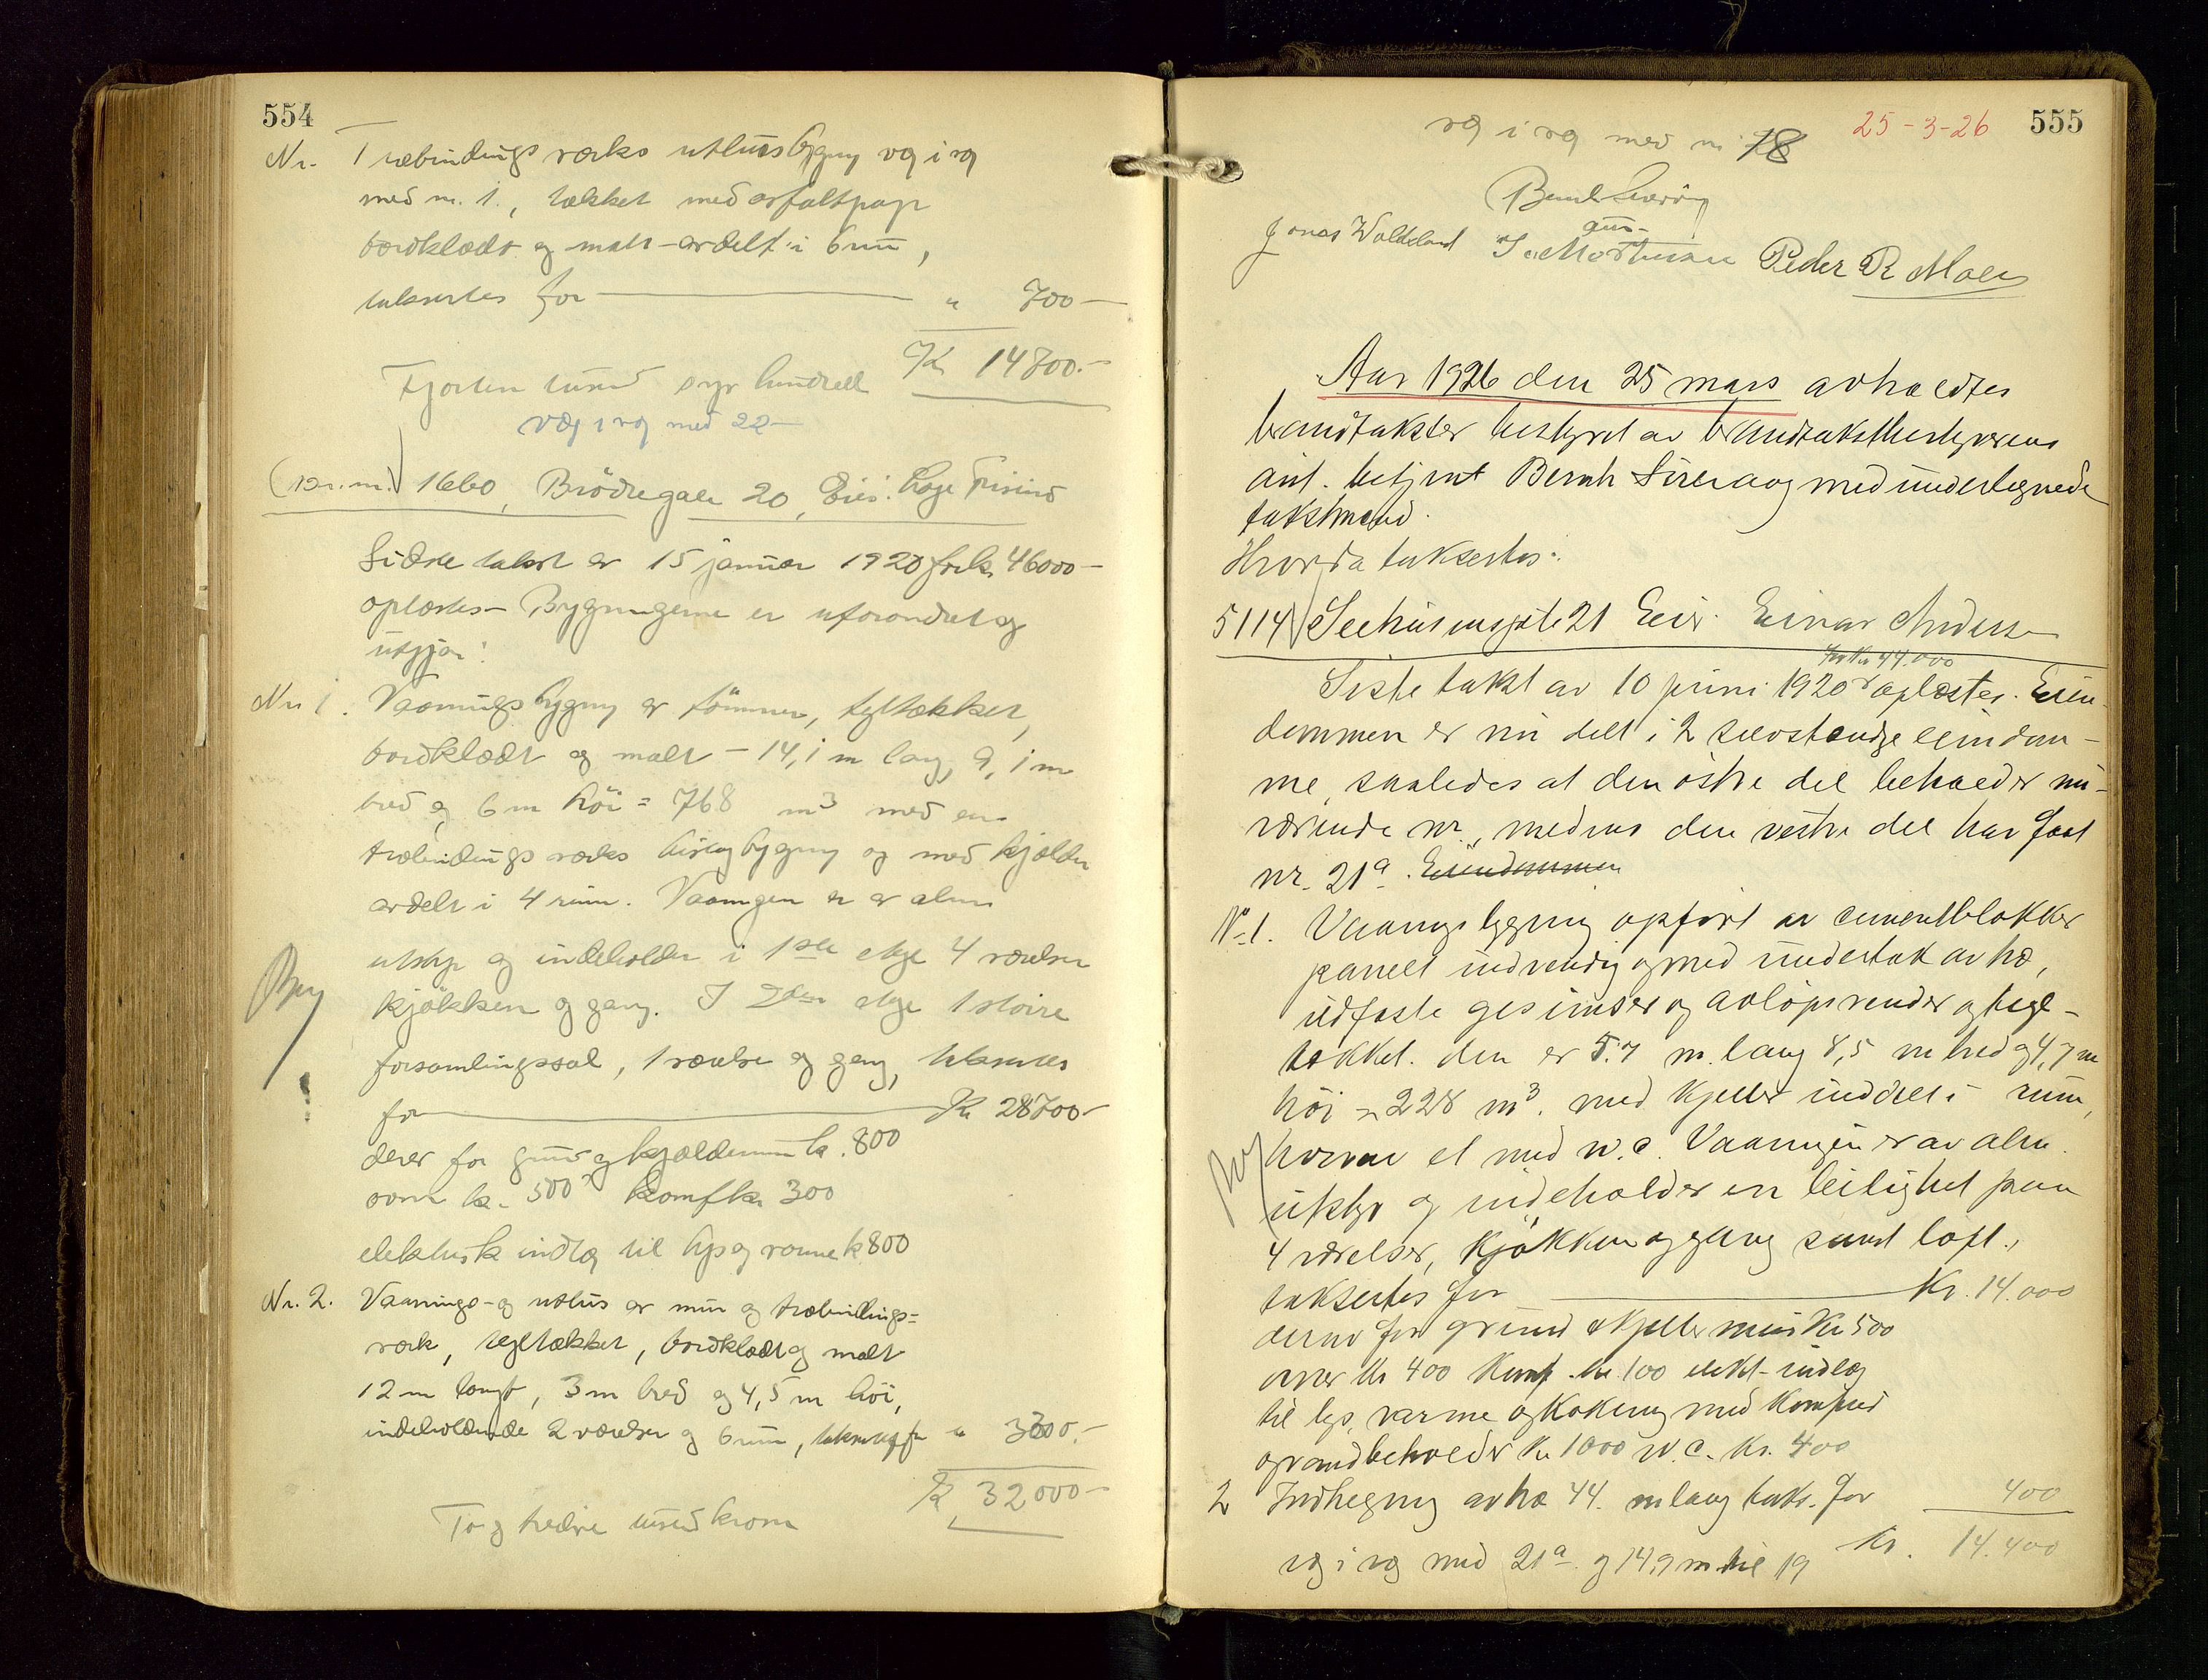 554
Nr. Træbindingsverks uthusbygng væg i væg
med nr. 1., tækket med asfaltpap
bordklædt og malt - avdelt i 6 rum,
takseres for — " 700 —
Kr 14700.-
Fjorten tusind syv hundrede
væg i væg med 22 —
(Br. nr.) 1660, Brödregate 20, Eier: Loge Frisind
Sidste takst av 15 januar 1920 for kr. 46000 -
oplæstes - Bygningerne er uforandret og
utgjør:
Nr. 1. Vaaningsbygng av tömmer, tegltækket,
bordklædt og malt - 14,1 m lang, 9,1 m
bred og 6 m höi = 768 m3 med en
træbindingsverks bislagbygng og med kjælder
avdelt i 4 rum. Vaangen er av alm.
utstyr og indeholder i 1ste etge 4 værelser
kjökken og gang. I 2den etge 1 större
Bry
forsamlingssal, 1 værelse og gang, takseres
for — Kr 28700 -
derav for grund og kjældermur kr. 800
ovner kr. 500 Komf kr 300
elektrisk indlæg til lys og varme kr 800
Nr. 2. Vaanings- og uthus av mur og træbindings=
verk, tegltækket, bordklædt og malt
12 m langt, 3 m bred og 4,5 m höi,
indeholdende 2 værelser og 6 rum, takseres for " 3300.-
Kr 32000 -
To og tredve tusind kroner
25-3-26 555
væg i væg med nr 18
Jonas Waldeland Peder R Moen
Aar 1926 den 25 mars avholdtes
brandtakster bestyret av brandtakstbestyrerens
ass. betjent Bernh Sirevaag med undertegnede
takstmænd.
Hvorda taksertes:
5114 Seehusensgate 21 Eier: Einar Andersen
for Kr 44.000
Siste takst av 10 juni 1920 oplæstes. Eien-
dommen er nu delt i 2 selvstendige eiendom-
me, saaledes at den östre del beholder nu-
værende nr., medens den vestre del har faat
nr. 21a. Eiendommen
No 1. Vaaningsbygning opfört av cementblokker
panelt indvendig og med undertak av træ,
utfaste gesimser og avlöpsrender og tegl-
tækket. den er 5.7 m. lang 8,5 m bred og 4,7 m
höi = 228 m3. med kjeller inddelt i rum,
Bry
hvorav et med w.c. Vaaningen er av alm.
utstyr og indeholder en leilighet paa
4 værelser, kjökken og gang samt loft.,
taksertes for — Kr. 14.000
derav for grund & kjeller mur Kr 500
ovner kr 400 Komf. kr. 100 elekt-indlæg
til lys, varme og kokning med komfur
og vandbeholder kr 1000 W.C. Kr. 400
2 Indhegning av træ 44. m lang taks. for 400
væg i væg med 21a og 14,9 m til 19 Kr. 14.400